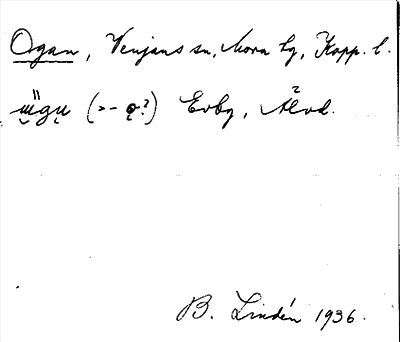 Ogan, Venjans sn, Mora lg, Kopp. l.
Evby, Älvd.
B. Lindén 1936.